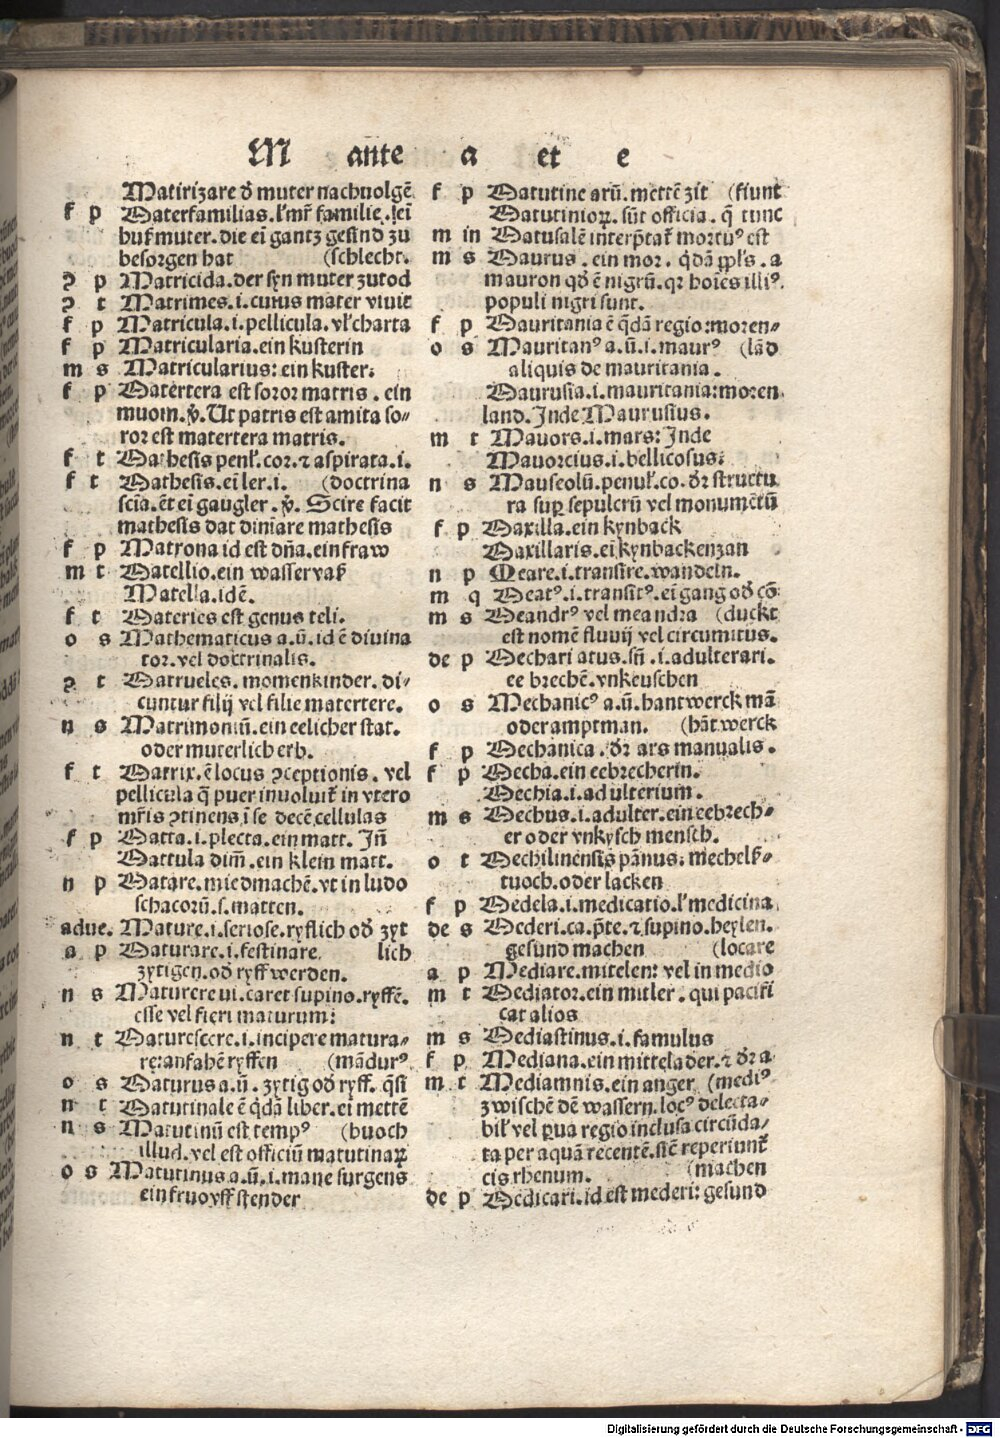 M ante a et e
Matirizare đ muter nachuolgē
f p Materfamilias. l'mr̄ familie. ſei
buſmuter. die eī gantz geſind zu
beſorgen hat (ſchlecht.
ꝯ p Matricida. der ſyn muter zutod
ꝯ t Matrimes. i. cuius mater viuit
f p Matricula. i. pellicula. vl' charta
f p Matricularia. ein kuſterin
m s Matricularius: ein kuſter.
f p Matertera eſt ſoror matris. ein
muom. ꝟ. Ut patris eſt amita ſo-
ror eſt matertera matris.
f t Mathesis penl'. cor. ⁊ aſpirata. i.
f t Matheſis. ei ler. i. (doctrina
ſcīa. ēt ei gaugler. ꝟ. Scire facit
matheſis dat diuīare matheſis
f p Matrona id eſt dn̄a. ein fraw
m t Matellio. ein waſſervaſ
Matella. idē.
f t Materies eſt genus teli.
o s Mathematicus a. ū. id ē diuina
tor. vel doctrinalis.
ꝯ t Matrueles. momenkinder. di-
cuntur filij vel filie matertere.
n s Matrimoniū. ein eelicher ſtat.
oder muterlich erb.
f t Matrix. ē locus ꝯceptionis. vel
pellicula q̄ puer inuoluit̄ in vtero
mr̄is ꝯtinens i ſe decē cellulas
f p Matta. i. plecta. ein matt. Jn̄
Mattula dim̄. ein klein matt.
n p Matare. miedmachē. vt in ludo
ſchacorū. ſ. matten.
adue. Mature. i. ſerioſe. ryflich od̄ zyt
a p Maturare. i. feſtinare. lich
zytigen. od̄ ryff werden.
n s Maturere ui. caret ſupino. ryffē.
eſſe vel fieri maturum:
n t Matureſcere. i. incipere matura-
re: anfahē ryffen (mādurꝰ
o s Maturus a. ū. zytig od̄ ryff. q̄ſi
n t Matutinale ē q̄dā liber. ei mettē
n s Matutinū eſt tempꝰ (buoch
illud. vel eſt officiū matutinaꝝ
o s Matutinus a. ū. i. mane ſurgens
ein fruo yff ſtender
f p Matutine arū. mettē zit (fiunt
Matutinioꝝ. ſūt officia. q̄ tunc
m in Matuſalē interp̄tat̄ mortuꝰ eſt
m s Maurus. ein mor. q̄dā ꝓpl's. a
mauron qđ ē nigrū. qꝛ hoīes illiꝰ
populi nigri ſunt.
f p Mauritania ē q̄dā regio: moren-
o s Mauritanꝰ a. ū. i. maurꝰ (lād
aliquis de mauritania.
Mauruſia. i. mauritania: moren
land. Jnde Mauruſius.
m t Mauors. i. mars: Jnde
Mauorcius. i. bellicoſus:
n s Mauſeolū. penul'. co. dr̄ ſtructu
ra ſuꝑ ſepulcrū vel monumētū
f p Maxilla. ein kynback
Maxillaris. ei kynbackenzan
n p Meare. i. tranſire. wandeln.
m q Meatꝰ. i. tranſitꝰ. ei gang od̄ cō
m s Meandrꝰ vel meandra (duckt
eſt nomē fluuij vel circumitus.
de p Mechari atus. ſū. i. adulterari.
ee brechē. vnkeuſchen
o s Mechanicꝰ a. ū. hantwerck mā
oder amptman. (hāt werck
f p Mechanica. dr̄ ars manualis.
f p Mecha. ein eebrecherin.
Mechia. i. adulterium.
m s Mechus. i. adulter. ein eebrech-
er oder vnkyſch menſch.
o t Mechilinenſis pānus: mechelſ-
tuoch. oder lacken
f p Medela. i. medicatio. l' medicina
de s Mederi. ca. p̄te. ⁊ ſupino. heylen.
geſund machen (locare
a p Mediare. mitelen: vel in medio
m t Mediator. ein mitler. qui pacifi
cat alios
m s Mediaſtinus. i. famulus
f p Mediana. ein mittelader. ⁊ dr̄ a
m t Mediamnis. ein anger (mediꝰ
zwiſchē dē waſſern. locꝰ delecta-
bil' vel ꝑua regio incluſa circūda-
ta per aquā recentē. ſic̄ reperiunt̄
cis rhenum. (machen
de p Medicari. id eſt mederi: geſund
Digitalisierung gefördert durch die Deutsche Forschungsgemeinschaft - DFG